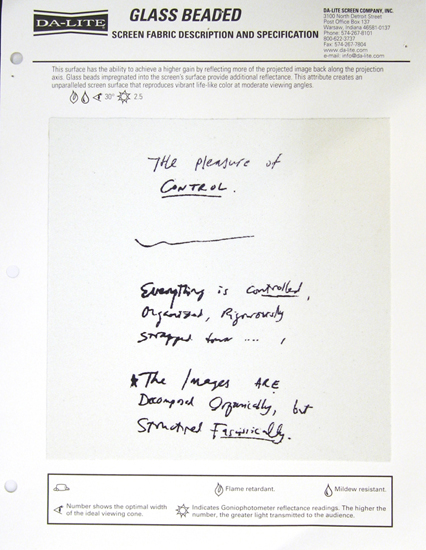 DA-LITE
GLASS BEADED
SCREEN FABRIC DESCRIPTION AND SPECIFICATION
DA-LITE SCREEN COMPANY, INC.
3100 North Detroit Street
Post Office Box 137
Warsaw, Indiana 46581-0137
Phone: 574-267-8101
800-622-3737
Fax: 574-267-7804
www.da-lite.com
e-mail: info@da-lite.com
This surface has the ability to achieve a higher gain by reflecting more of the projected image back along the projection
axis. Glass beads impregnated into the screen's surface provide additional reflectance. This attribute creates an
unparalleled screen surface that reproduces vibrant life-like color at moderate viewing angles.
30° 2.5
THE pleasure of
CONTROL.
Everything is controlled,
Organized, Rigorously
Strapped down .... ,
* The Images ARE
Decomposed Organically, but
Structured Fascistically.
Flame retardant.
Mildew resistant.
Number shows the optimal width
of the ideal viewing cone.
Indicates Goniophotometer reflectance readings. The higher the
number, the greater light transmitted to the audience.